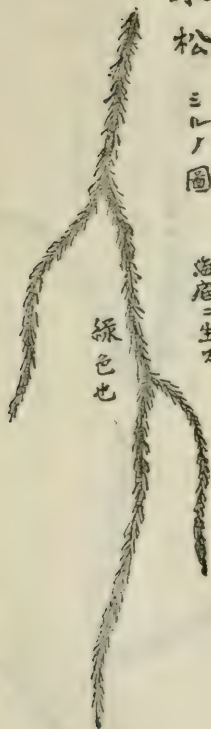 松 ミルノ圖 海底ニ生ス
緑色也